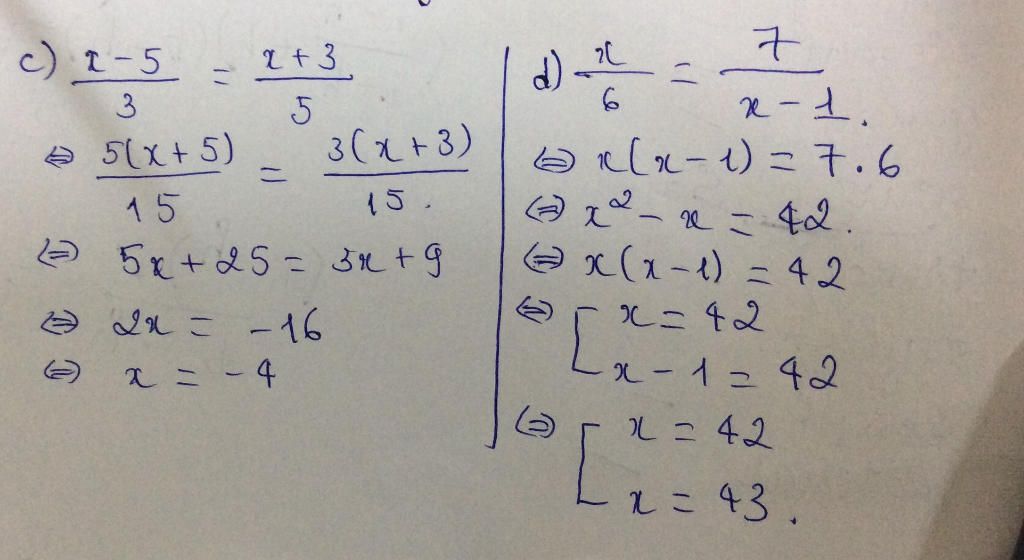 c) x-5/3 = x+3/5
⇔ 5(x+5)/15 = 3(x+3)/15.
⇔ 5x+25 = 3x+9
⇔ 2x = -16
⇔ x = -4
d) x/6 = 7/x-1.
⇔ x(x-1) = 7.6
⇔ x²-x = 42.
⇔ x(x-1) = 42
⇔ [ x = 42
x-1 = 42
⇔ [ x = 42
x = 43.